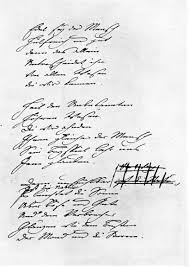 Edel sey der Mensch
Hülfreich und gut
denn das allein
Unterscheidet ihn
Von allen Wesen
die wir kennen.
Heil den Unbekannten
Höheren Wesen
Die wir ahnden
Ihnen gleiche der Mensch
Sein Beyspiel lehr uns
Jene glauben.
ist die Natur
Es leuchtet die Sonne
Über Bös und Gute
Und dem Verbrecher
Glänzen wie dem Besten
Der Mond und die Sterne.